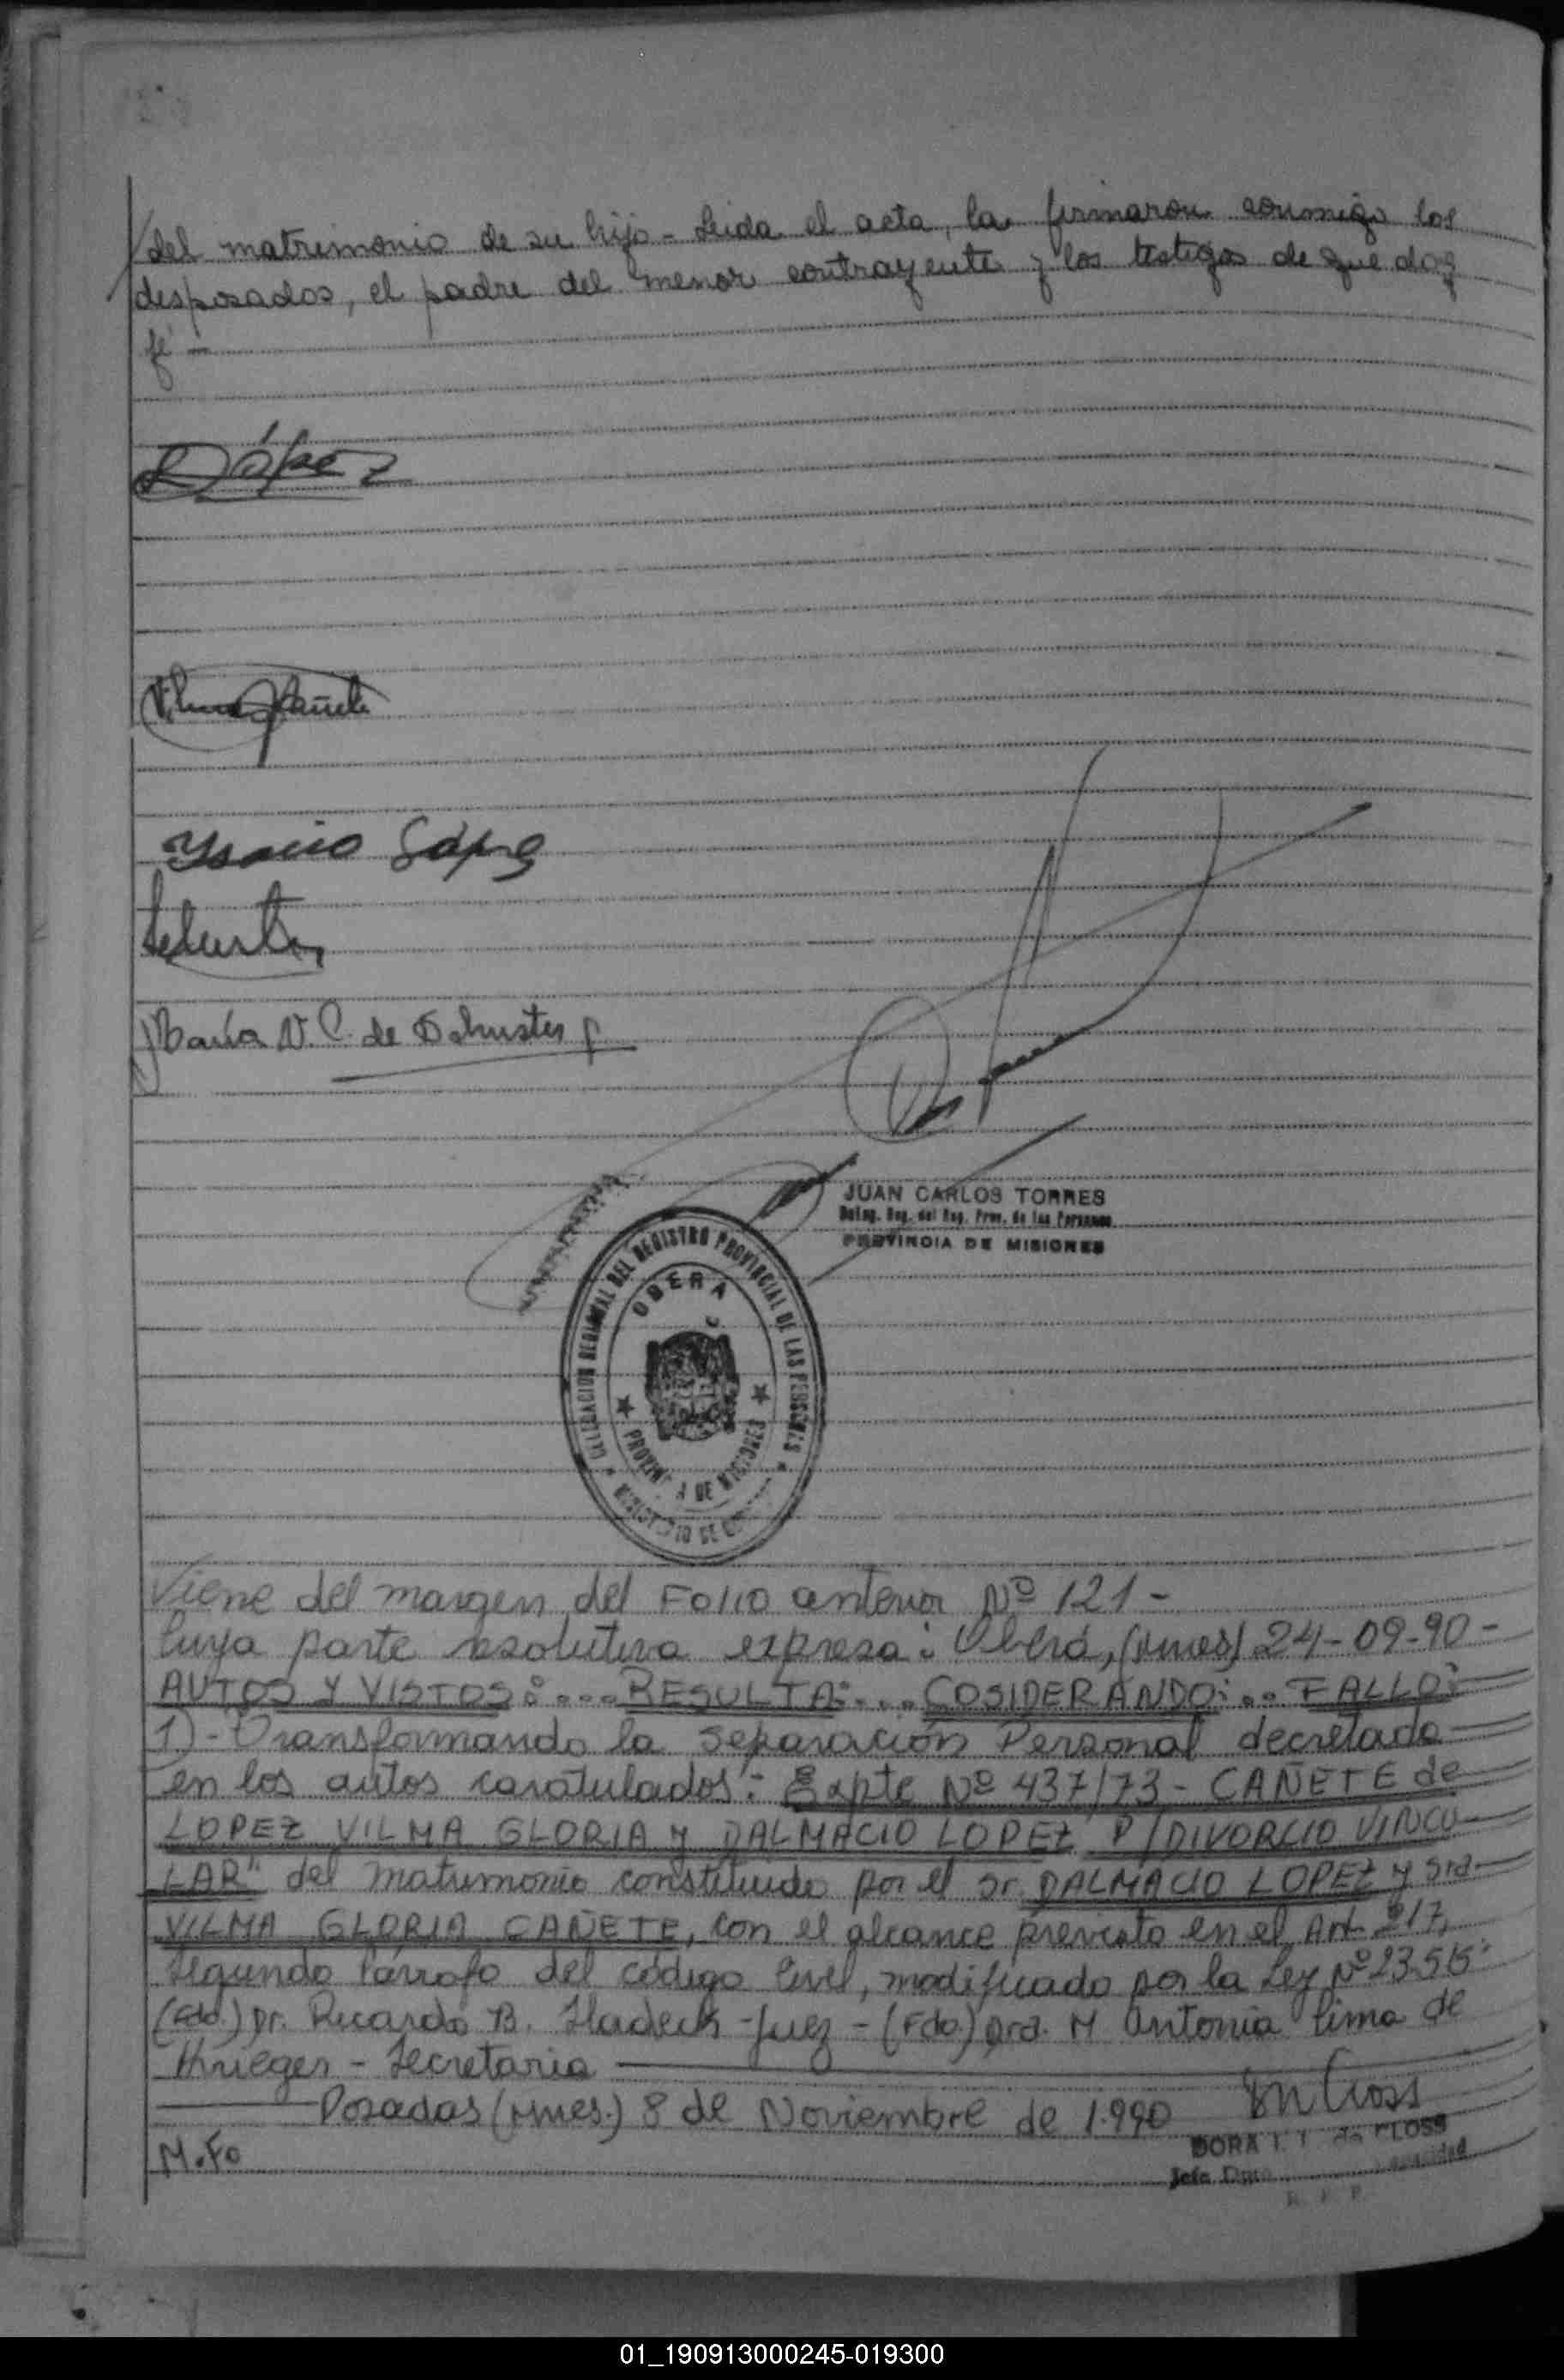 del matrimonio de su hijo - Leida el acta, la firmaron conmigo los
desposados, el padre del menor contrayente y los testigos de que doy
fé -
López
Vilma Cañete
María N. C. de Schuster
JUAN CARLOS TORRES
Deleg. Reg. del Reg. Prov. de las Personas
PROVINCIA DE MISIONES
DELEGACION REGIONAL DEL REGISTRO PROVINCIAL DE LAS PERSONAS
OBERA
PROVINCIA DE MISIONES
MINISTERIO DE
Viene del margen del Folio anterior Nº 121 -
Cuya parte resolutiva expresa: Oberá, (Mnes) 24-09-90 -
AUTOS Y VISTOS:... RESULTA:... COSIDERANDO:.. FALLO:
1)- Transformando la Separación Personal decretada
en los autos caratulados: "Expte Nº 437/73 - CAÑETE de
LOPEZ VILMA GLORIA Y DALMACIO LOPEZ P/DIVORCIO VINCU
LAR" del matrimonio constituido por el Sr. DALMACIO LOPEZ y Sra.
VILMA GLORIA CAÑETE, con el alcance previsto en el Art. 217,
segundo Párrafo del código Civil, modificado por la Ley Nº 23.515.
(Fdo.) Dr. Ricardo B. - Juez - (Fdo.) Dra. M. Antonia Lima de
Krieger - Secretaria
Posadas (Mnes.) 8 de Noviembre de 1.990
M.Fo
DORA de CLOSS
Jefe Dpto. Capacidad
R. P. P.
01_190913000245-019300